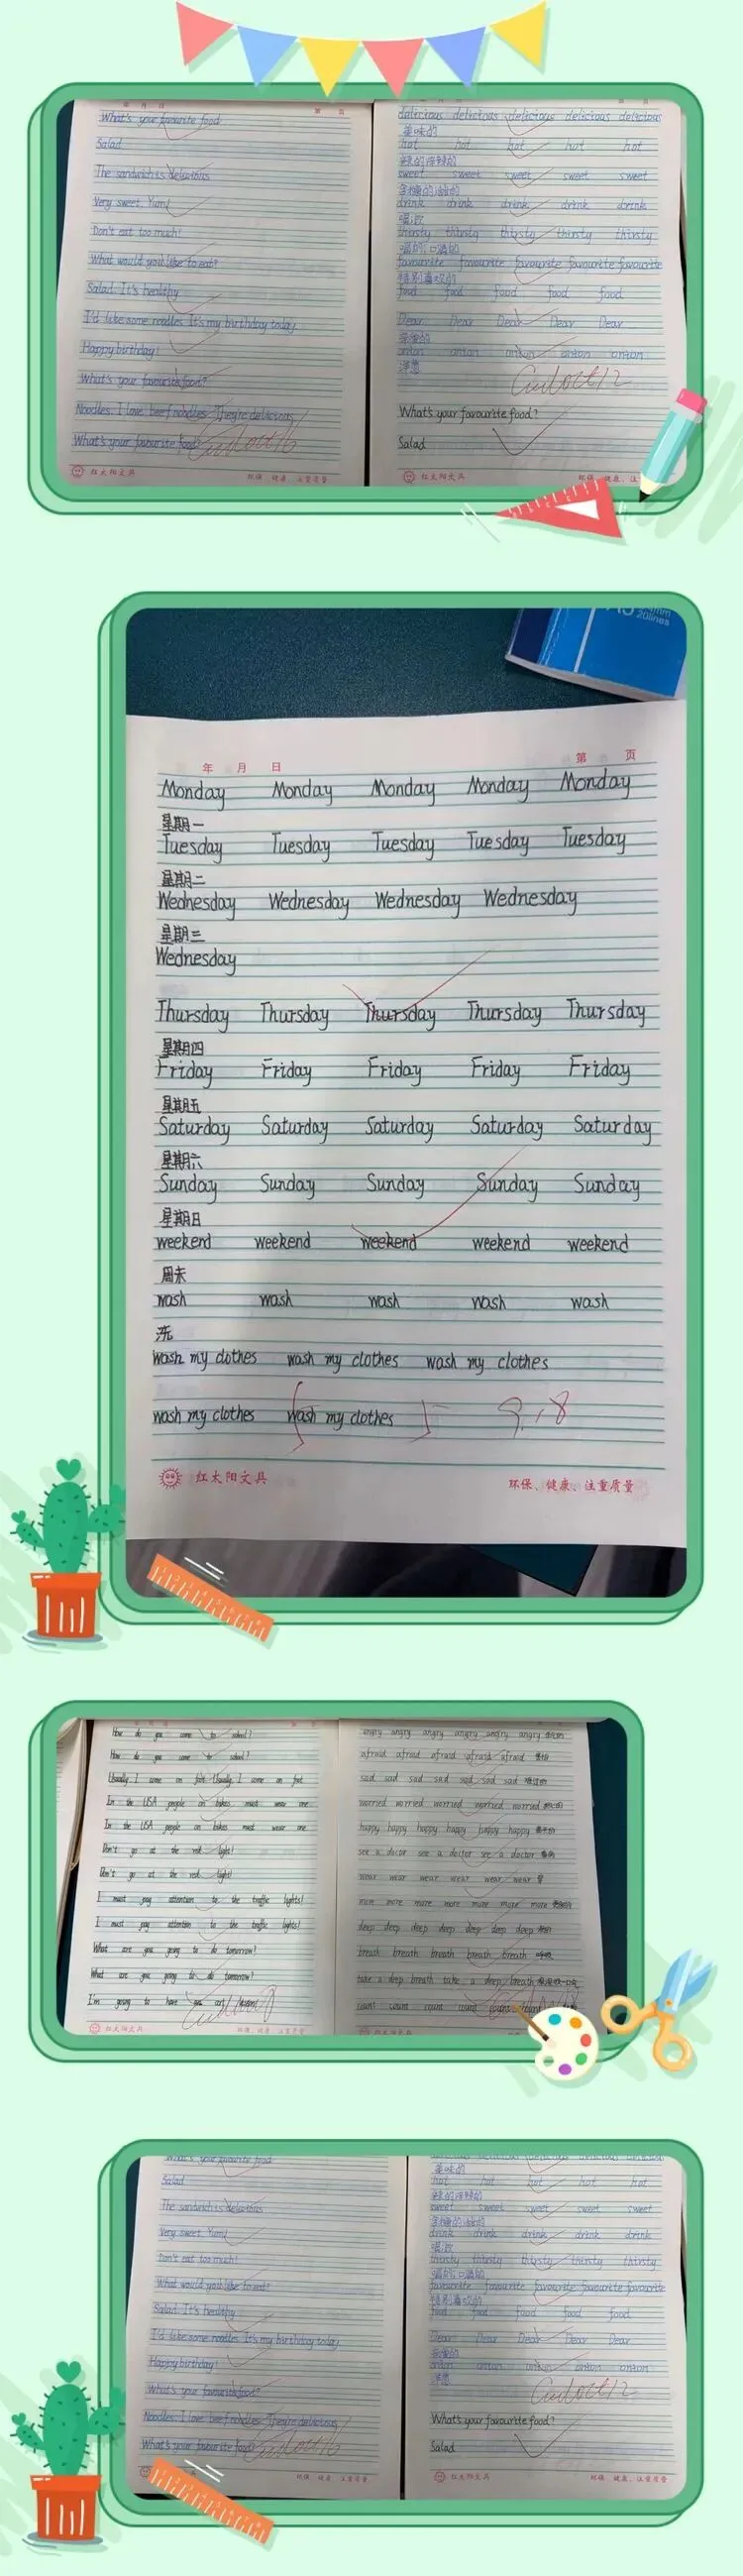 年 月 日
第 页
What's your favourite food
Salad
The sandwich is delicious
Very sweet. Yum!
Don't eat too much!
What would you like to eat?
Salad. It's healthy
I'd like some noodles. It's my birthday today
Happy birthday!
What's your favourite food?
Noodles. I love beef noodles. They're delicious
What's your favourite food?
红太阳文具
环保、健康、注重质量
delicious delicious delicious delicious delicious
美味的
hot hot hot hot hot
辣的
sweet sweet sweet sweet sweet
drink drink drink drink drink
thirsty thirsty thirsty thirsty thirsty
favourite favourite favourite favourite favourite
特别喜欢的
food food food food food
Dear Dear Dear Dear Dear
亲爱的
onion onion onion onion onion
洋葱
What's your favourite food?
Salad
红太阳文具
环保、健康、注
20lines
年 月 日
第 页
Monday Monday Monday Monday Monday
星期一
Tuesday Tuesday Tuesday Tuesday Tuesday
星期二
Wednesday Wednesday Wednesday Wednesday
星期三
Wednesday
Thursday Thursday Thursday Thursday Thursday
星期四
Friday Friday Friday Friday Friday
星期五
Saturday Saturday Saturday Saturday Saturday
星期六
Sunday Sunday Sunday Sunday Sunday
星期日
weekend weekend weekend weekend weekend
周末
wash wash wash wash wash
洗
wash my clothes wash my clothes wash my clothes
wash my clothes wash my clothes
9.18
红太阳文具
环保、健康、注重质量
How do you come to school?
How do you come to school?
Usually I come on foot Usually I come on foot
In the USA people on bikes must wear one
In the USA people on bikes must wear one
Don't go at the red light!
Don't go at the red light!
I must pay attention to the traffic lights!
I must pay attention to the traffic lights!
What are you going to do tomorrow?
What are you going to do tomorrow?
I'm going to have an art lesson!
红太阳文具
环保、健康、注重质量
angry angry angry angry angry angry
afraid afraid afraid afraid afraid
sad sad sad sad sad sad 难过的
worried worried worried worried worried
happy happy happy happy happy happy
see a doctor see a doctor see a doctor
wear wear wear wear wear wear 穿
more more more more more more more
deep deep deep deep deep deep
breath breath breath breath breath
take a deep breath take a deep breath
count count count count count count
What's your favourite food
Salad
The sandwich is delicious
Very sweet. Yum!
Don't eat too much!
What would you like to eat?
Salad. It's healthy
I'd like some noodles. It's my birthday today
Happy birthday!
What's your favourite food?
Noodles. I love beef noodles. They're delicious
What's your favourite food?
环保、健康、注重质量
美味的
hot hot hot hot hot
sweet sweet sweet sweet sweet
drink drink drink drink drink
thirsty thirsty thirsty thirsty thirsty
favourite favourite favourite favourite favourite
特别喜欢的
food food food food food
Dear Dear Dear Dear Dear
亲爱的
onion onion onion onion onion
洋葱
What's your favourite food?
Salad
红太阳文具
环保、健康、注重质量